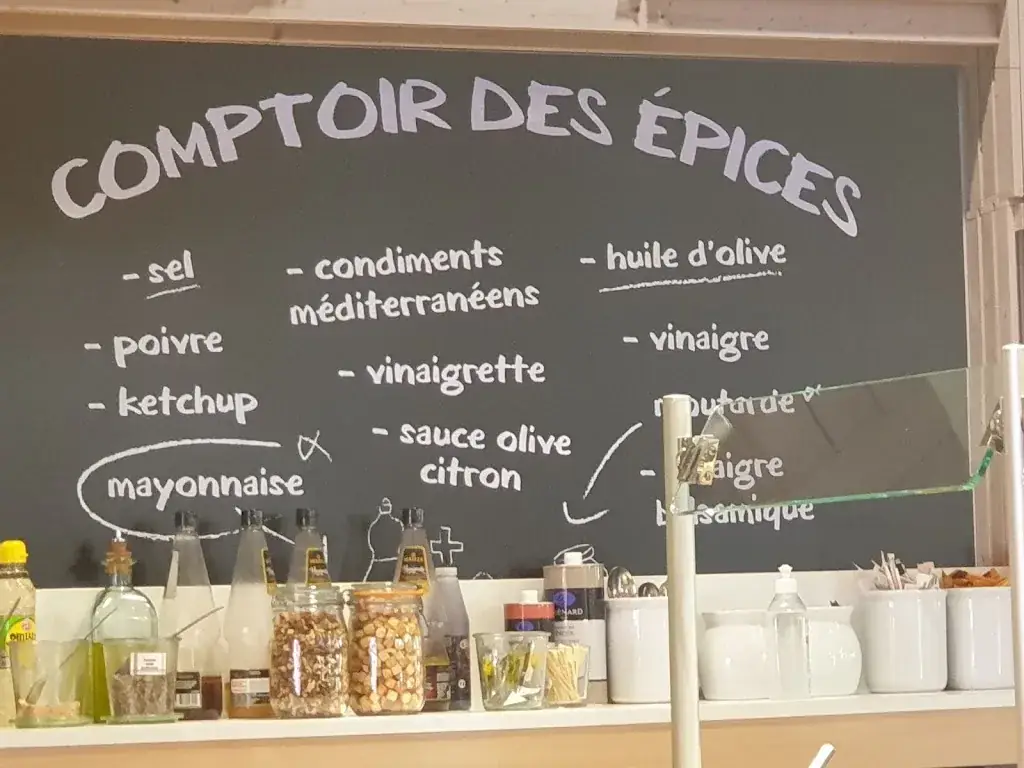 COMPTOIR DES ÉPICES
- sel
- poivre
- ketchup
mayonnaise
- condiments
méditerranéens
- vinaigrette
- sauce olive
citron
- huile d'olive
- vinaigre
moutarde
- vinaigre
balsamique